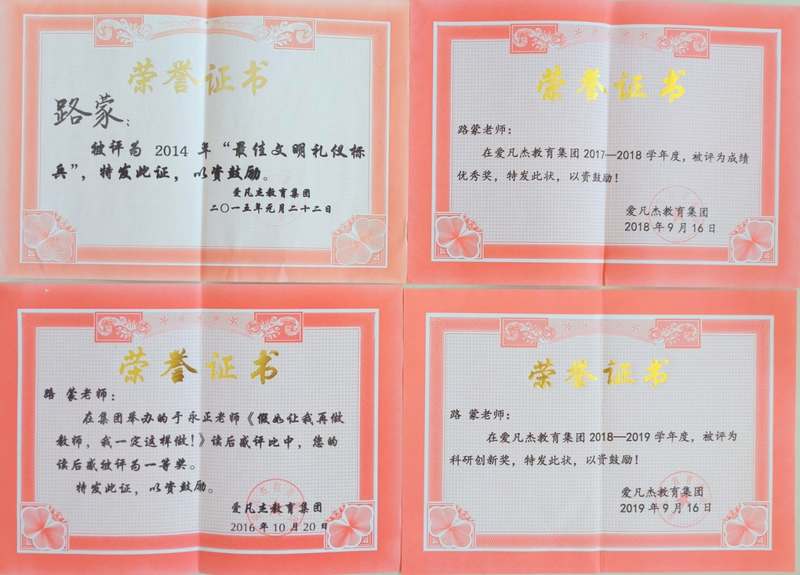 荣誉证书
路蒙：
被评为 2014 年“最佳文明礼仪标
兵”，特发此证，以资鼓励。
爱凡杰教育集团
二〇一五年元月二十二日
荣誉证书
路蒙老师：
在爱凡杰教育集团 2017—2018 学年度，被评为成绩
优秀奖，特发此状，以资鼓励！
爱凡杰教育集团
2018 年 9 月 16 日
荣誉证书
路 蒙老师：
在集团举办的于永正老师《假如让我再做
教师，我一定这样做！》读后感评比中，您的
读后感被评为一等奖。
特发此证，以资鼓励。
爱凡杰教育集团
2016 年 10 月 20 日
荣誉证书
路 蒙老师：
在爱凡杰教育集团 2018—2019 学年度，被评为
科研创新奖，特发此状，以资鼓励！
爱凡杰教育集团
2019 年 9 月 16 日